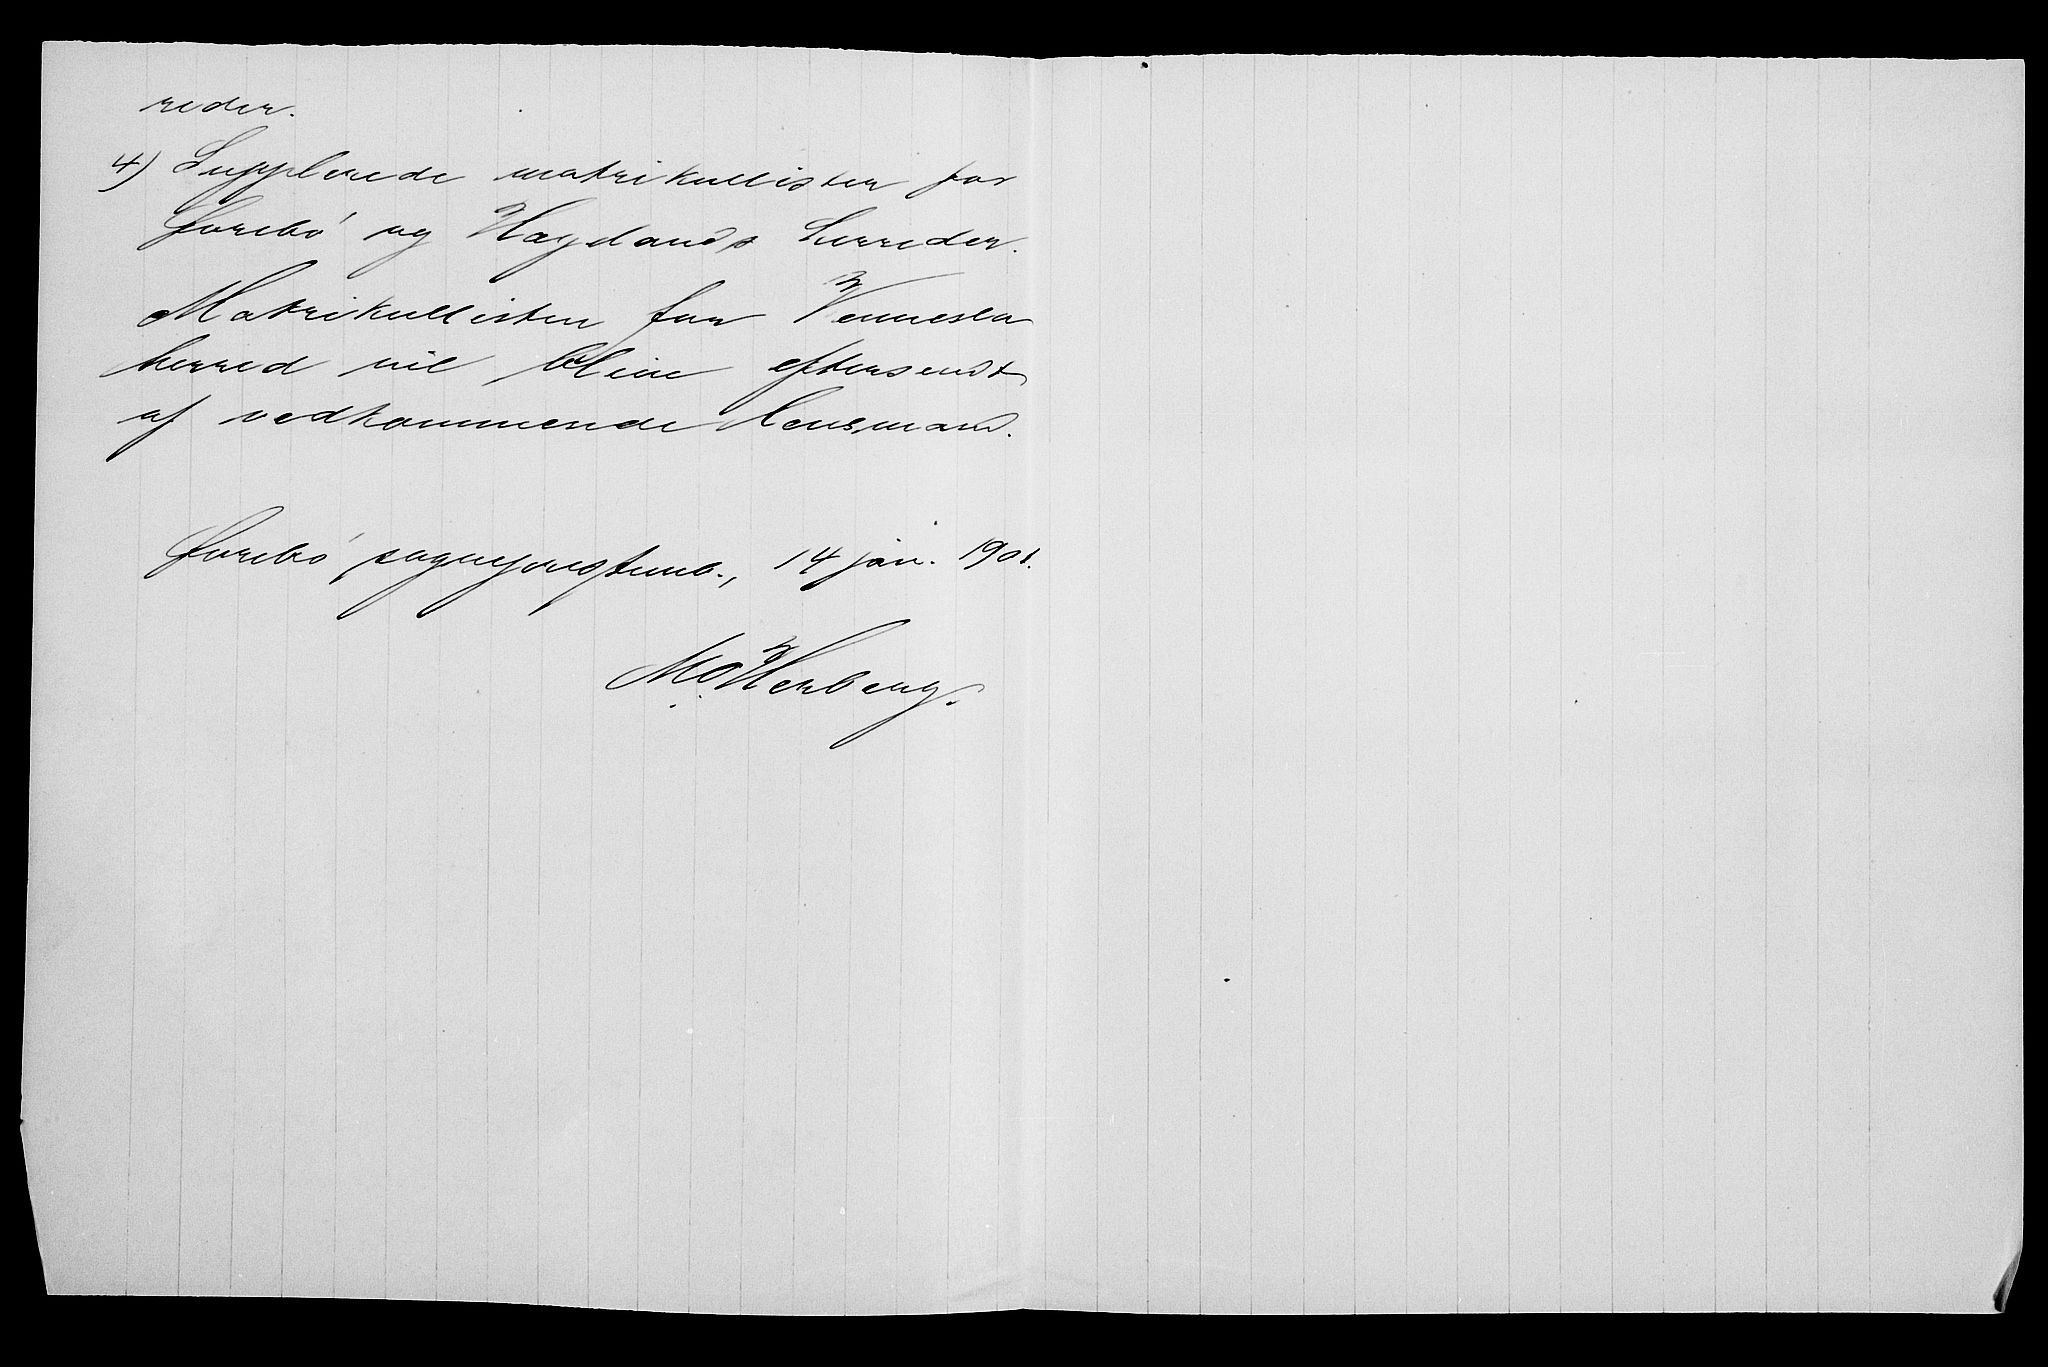 reder.
4) Supplerede matrikullister for
Iveland og Hægelands herreder.
Matrikullisten for Vennesla
herred vil blive eftersendt
af vedkommende lensmand.
14 jan. 1901.